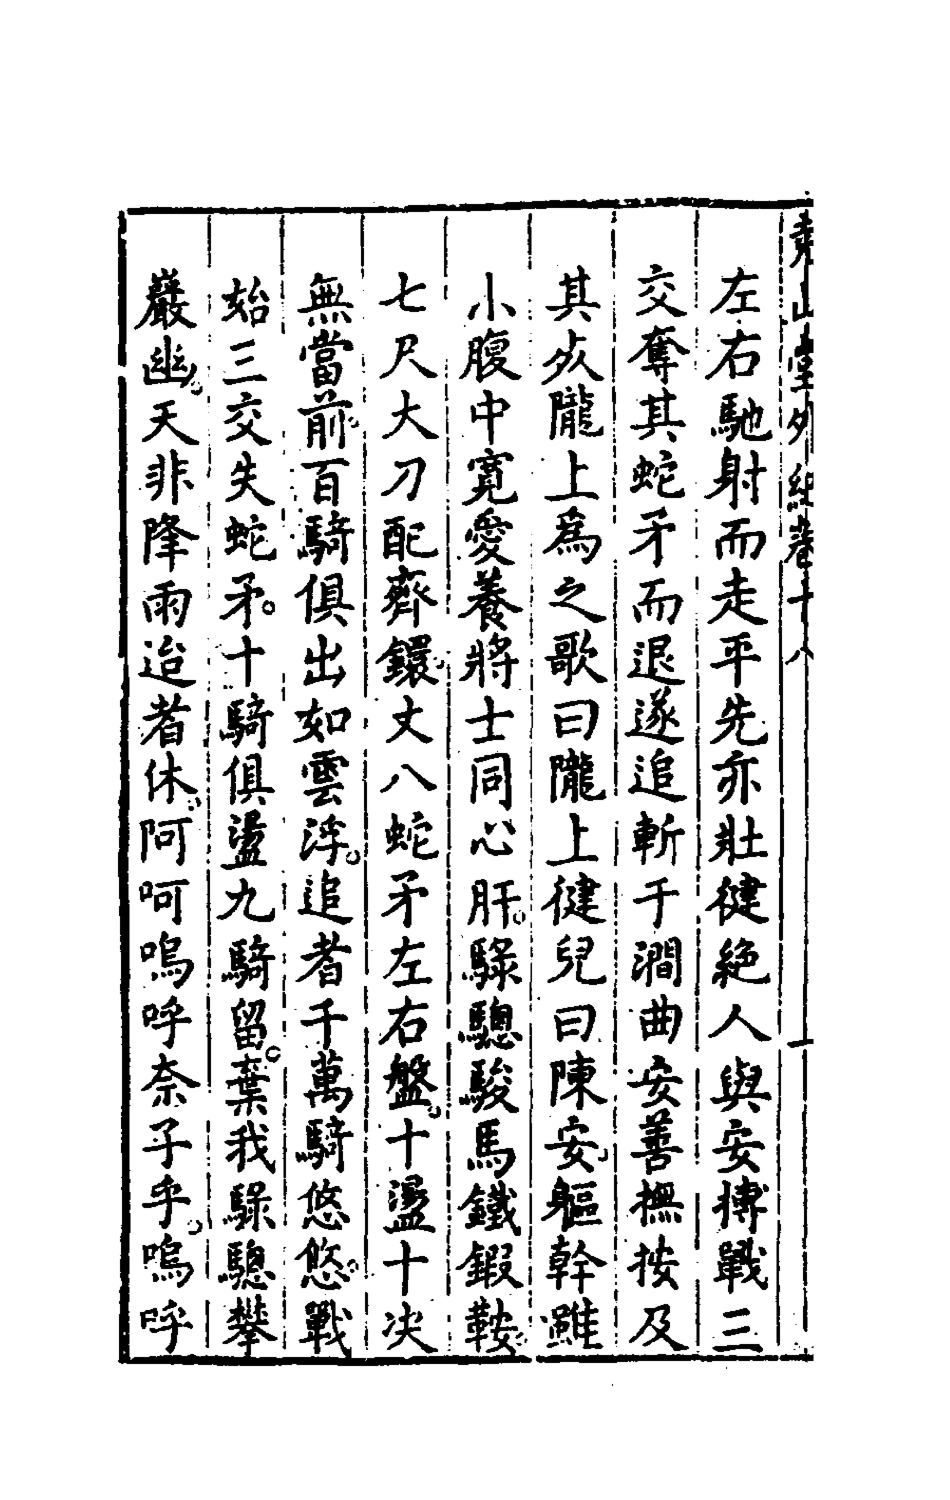 堯山堂外紀卷十八 一
左右馳射而走平先亦壯健絶人與安搏戰三
交奪其蛇矛而退遂追斬于澗曲安善撫按及
其死隴上爲之歌曰隴上健兒曰陳安軀幹雖
小腹中寛愛養將士同心肝騄驄駿馬鐵鍜鞍
七尺大刀配齊鐶丈八蛇矛左右盤十盪十决
無當前百騎俱出如雲浮追者千萬騎悠悠戰
始三交失蛇矛十騎俱盪九騎留棄我騄驄攀
巖幽天非降雨迨者休阿呵嗚呼奈子乎嗚呼